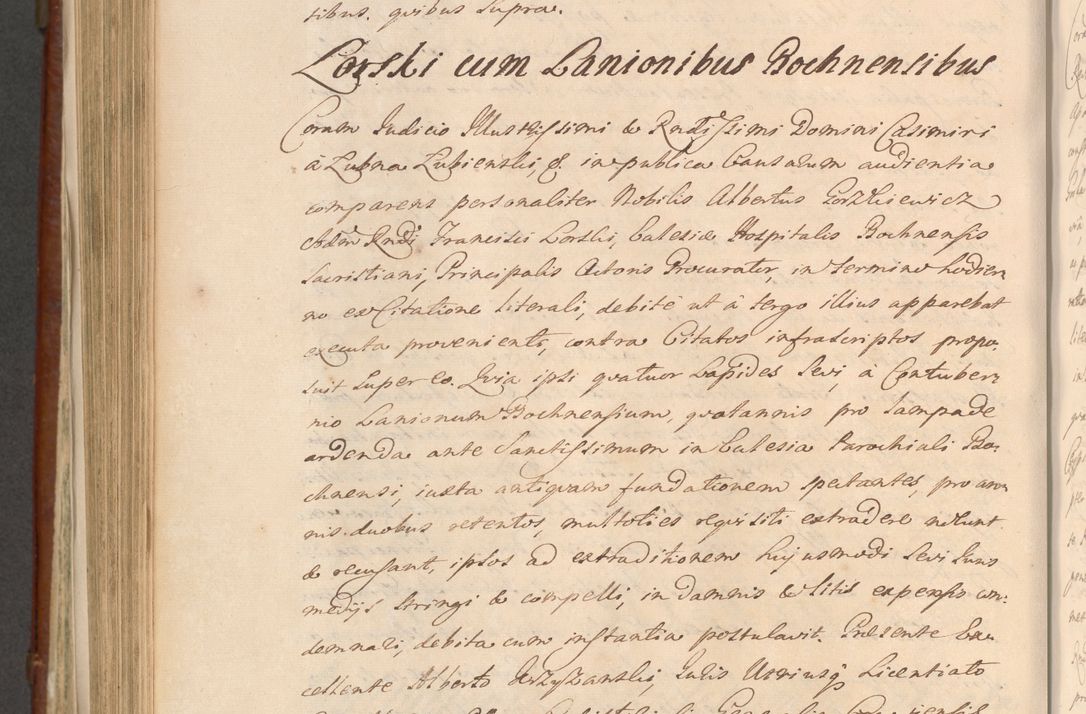 tibus. quibus Supra.
Lorski cum Lanionibus Bochnensibus
Coram Judicio Illustrissimi & Rndissimi Domini Casimiri
a Lubna Lubienski, &. in publica Causarum audientia
comparens personaliter Nobilis Albertus Gorzkiewicz
Adm Rndi Francisci Lorski, Ecclesiæ Hospitalis Bochnensis
Sacristiani, Principalis Actoris Procurator, in termino hodier,
no ex Citatione literali, debitè ut à tergo illius apparebat
executa provenienti, contra Citatos infrascriptos propo,
suit super eo. Quia ipsi quatuor Lapides Sevi, à Contuber,
nio Lanionum Bochnensium, quotannis pro Lampade
ardenda ante Sanctissimum in Ecclesia Parochiali Bo,
chnensi, iuxta antiquam fundationem spectantes, pro an,
nis duobus retentos, multoties requisiti extradere nolunt
& recusant, ipsos ad extraditionem hujusmodi Sevi Juris
medijs stringi & compelli, in damnis & litis expensis con,
demnari, debita cum instantia postulavit. Præsente Ex,
cellente Alberto Krzyzanski, Juris Utriusq Licentiato